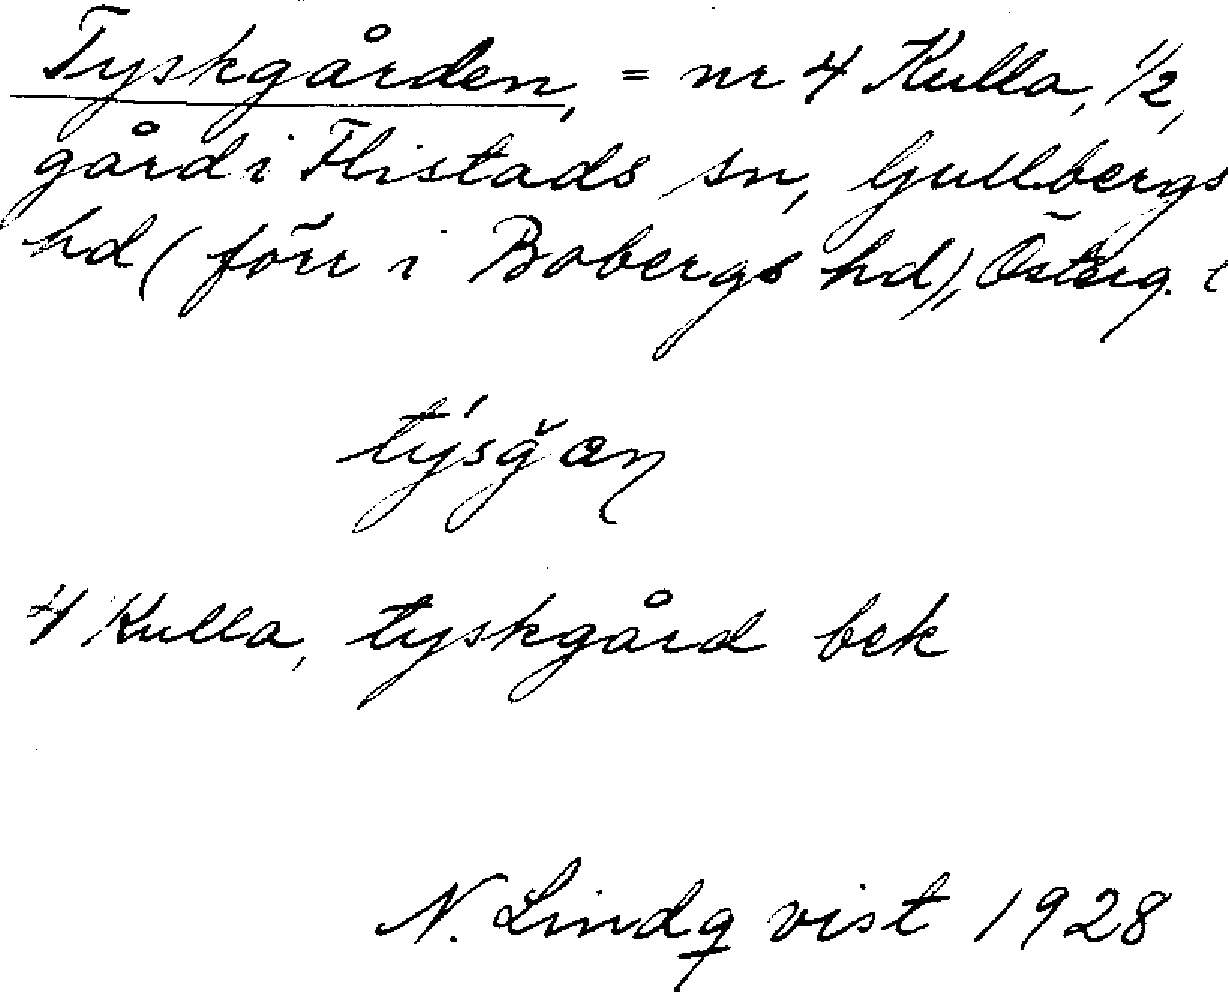 Tyskgården, = nr 4 Kulla, 1/2,
gård i Flistads sn, Gullbergs
hd (förr i Bobergs hd), Österg. l
4 Kulla, tyskgård bek
N. Lindqvist 1928